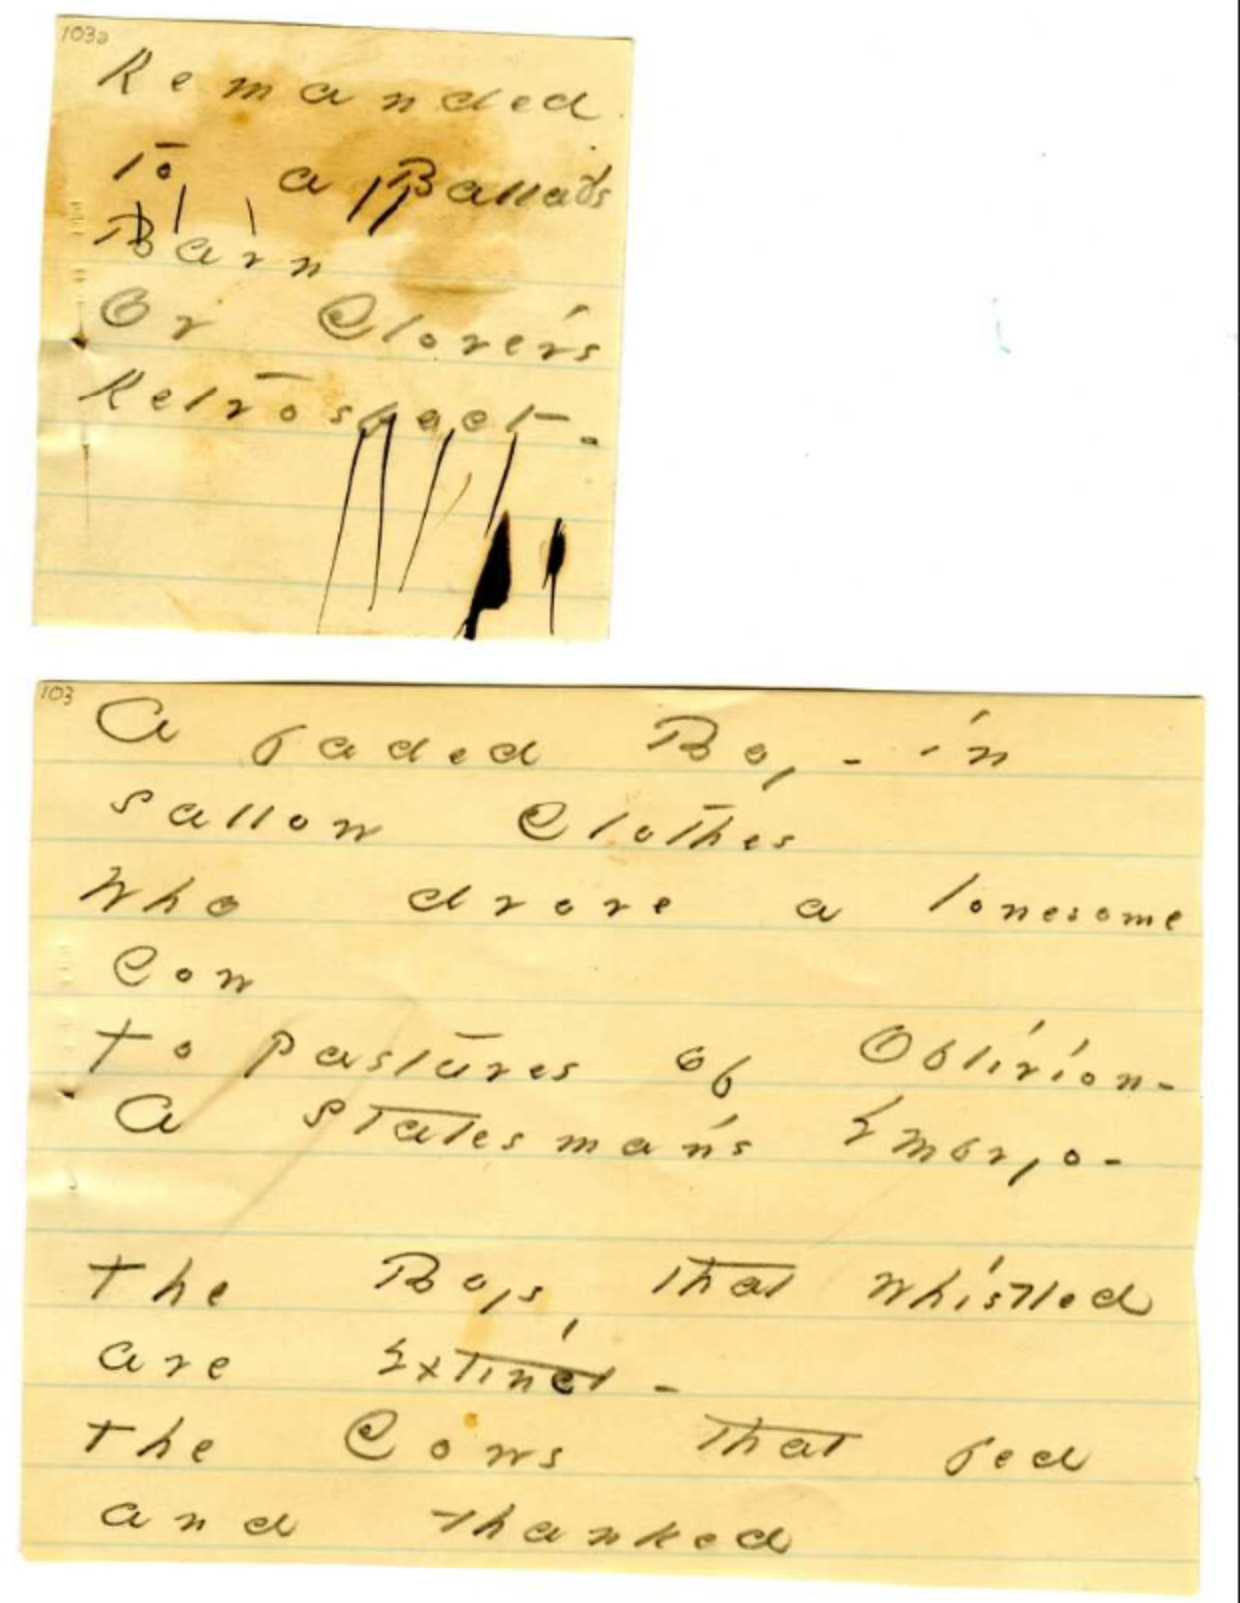 103a
Remanded
To a Ballad's
Barn
Or Clover's
Retrospect -
103
A faded Boy - in
sallow Clothes
Who drove a lonesome
Cow
To pastures of Oblivion -
A statesman's Embryo -
The Boys that whistled
are Extinct -
The Cows that fed
and thanked